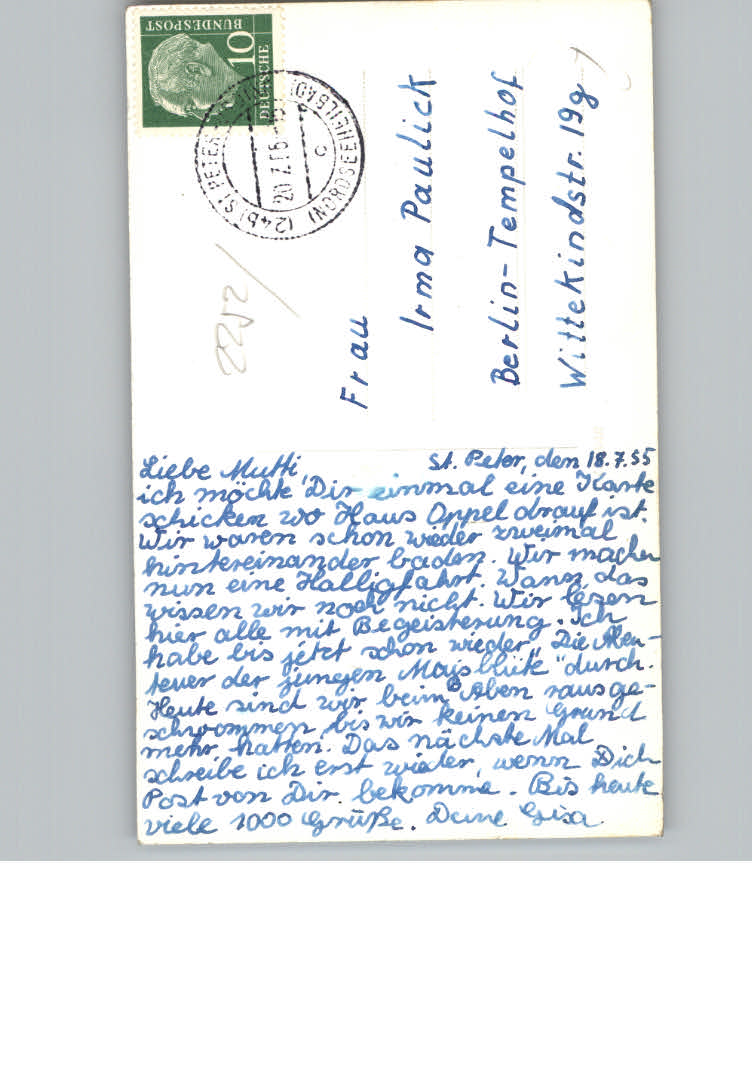 DEUTSCHE
BUNDESPOST
10
(24b) ST PETER-
(NORDSEEHEILBAD)
c
2252
Frau
Irma Paulick
Berlin-Tempelhof
Wittekindstr. 19g
St. Peter, den 18.7.55
Liebe Mutti,
ich möchte Dir einmal eine Karte
schicken wo Haus Appel drauf ist.
Wir waren schon wieder zweimal
hintereinander baden. Wir machen
nun eine Halligfahrt. Wann, das
wissen wir noch nicht. Wir lesen
hier alle mit Begeisterung. Ich
habe bis jetzt schon wieder „Die Aben-
teuer der jungen Maisblüte" durch.
Heute sind wir beim Aben rausge-
schwommen, bis wir keinen Grund
mehr hatten. Das nächste Mal
schreibe ich erst wieder, wenn Dich
Post von Dir bekomme. Bis heute
viele 1000 Grüße. Deine Gisa.